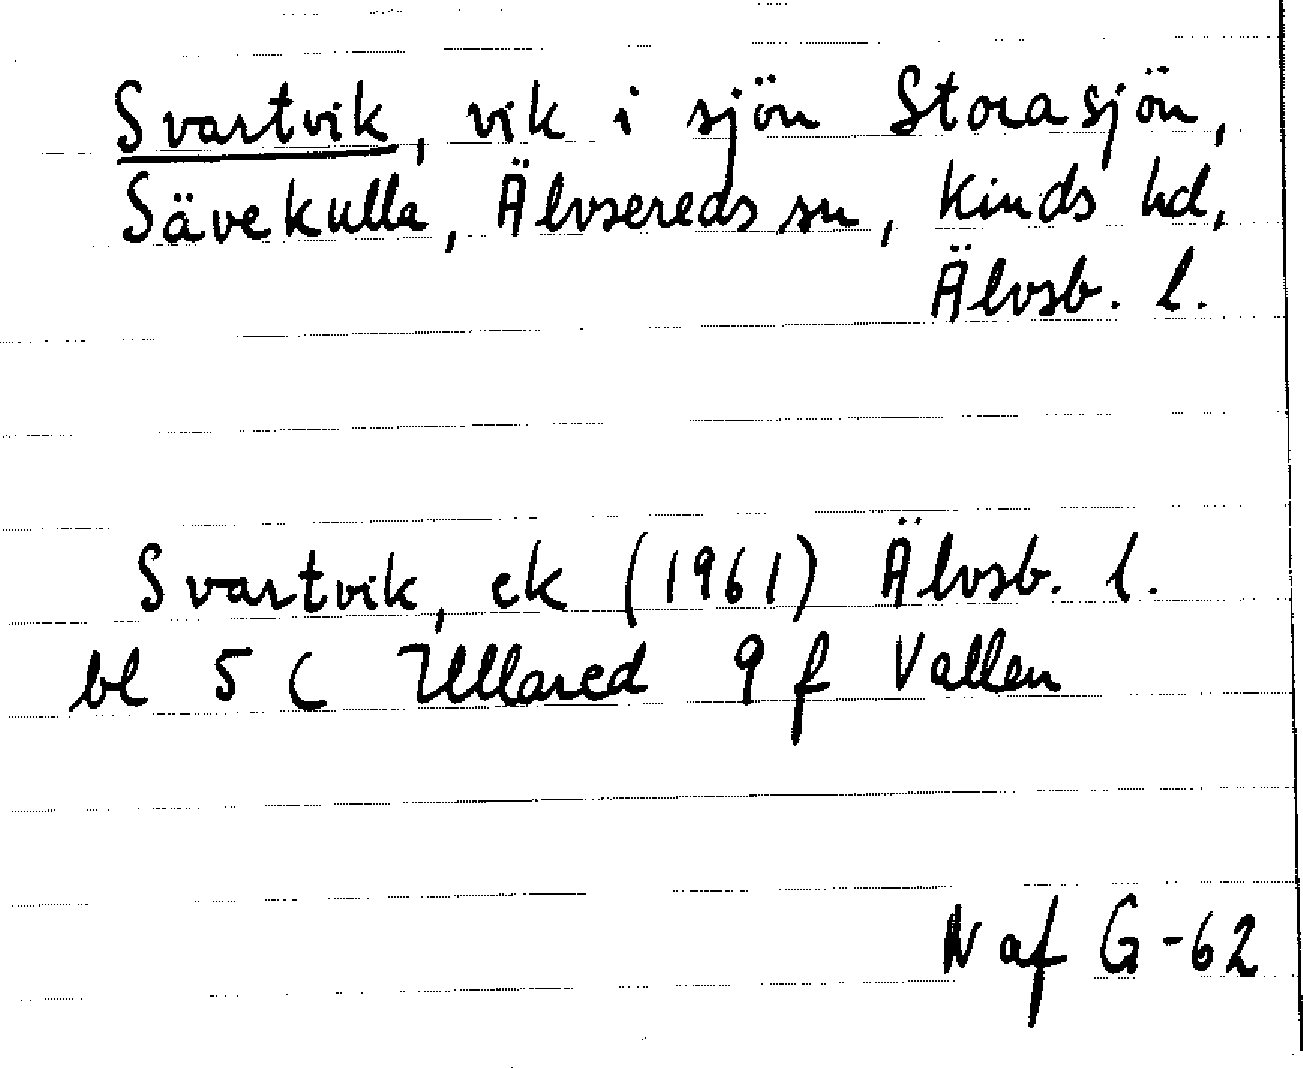 Svartvik, vik i sjön Storasjön,
Sävekulla, Älvsereds sn, Kinds hd,
Älvsb. l.
Svartvik, ek (1961) Älvsb. l.
bl 5 C Ullared 9 f Vallen
N af G -62